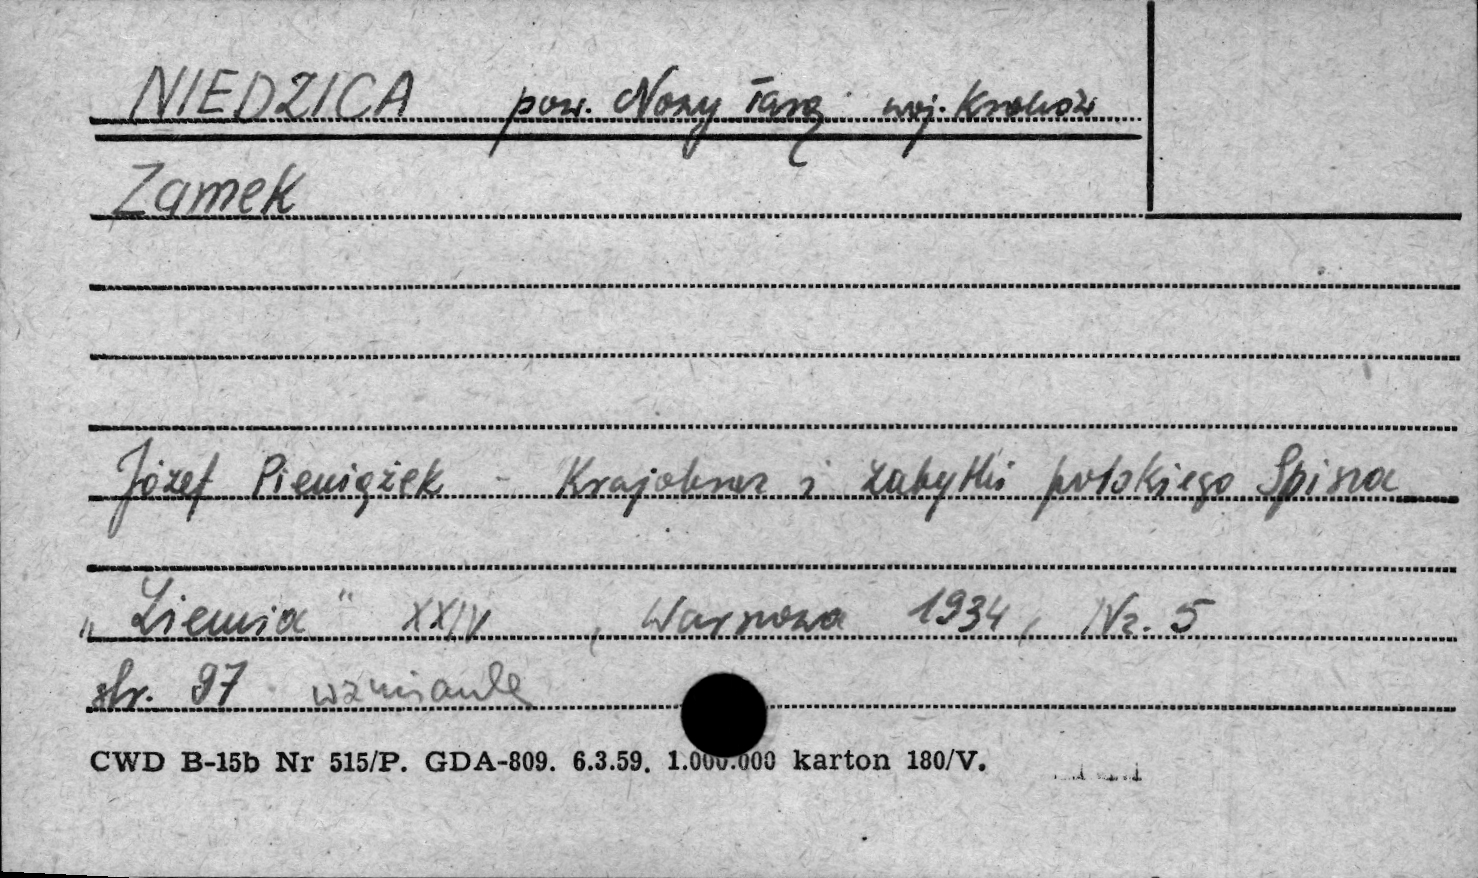 NIEDZICA pow. Nowy Targ woj. Kraków
Zamek
Józef Pieniążek - Krajobraz i zabytki polskiego Spisza
„Ziemia" XXIV, Warszawa 1934, Nr. 5
str. 97 wzmianka
CWD B-15b Nr 515/P. GDA-809. 6.3.59. 1.000.000 karton 180/V.